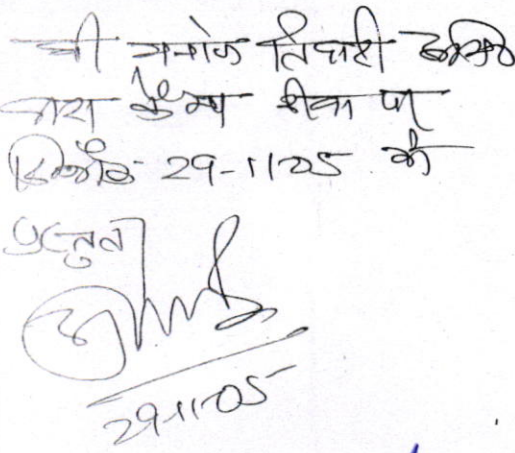 श्री मनोज तिवारी
द्वारा कैम्प रीवा पर
दिनाँक 29-11-05 को
प्रस्तुत
29-11-05